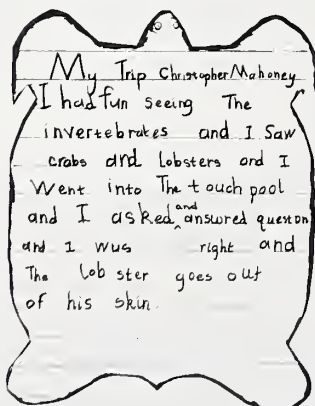 My Trip Christopher Mahoney
I had fun seeing The
invertebrates and I Saw
crabs and Lobsters and I
Went into The touch pool
and I asked and answred queston
and I wus right and
The lobster goes out
of his skin.